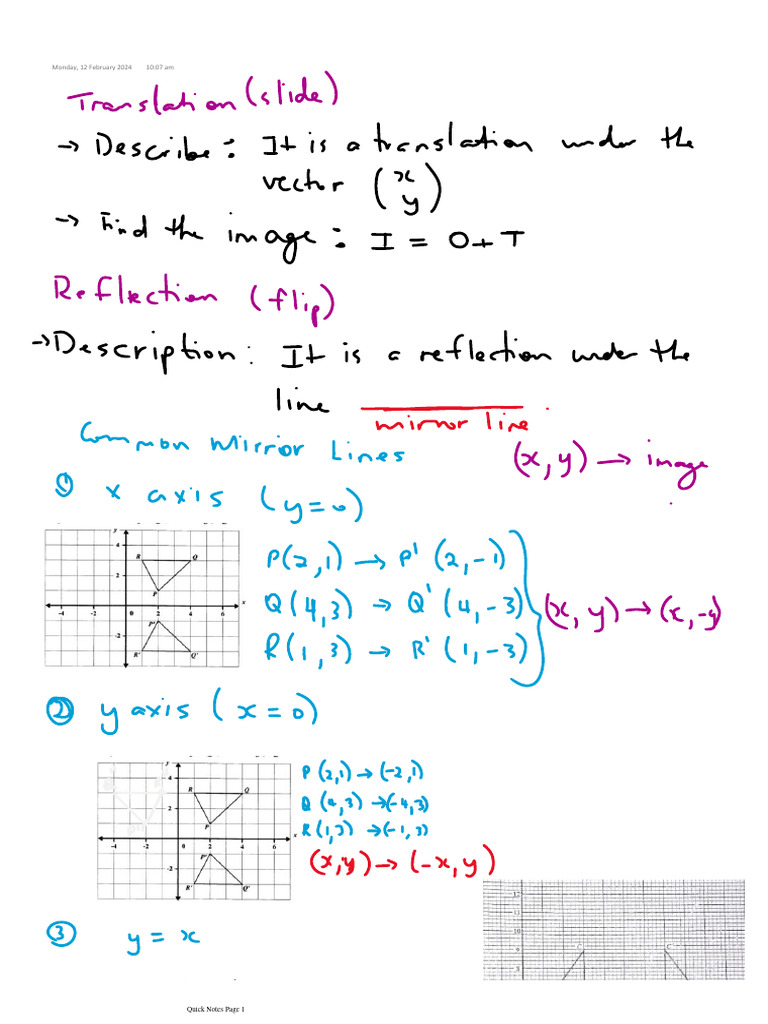 Monday, 12 February 2024 10:07 am
Translation (slide)
→ Describe: It is a translation under the
vector (x y)
→ Find the image: I = O+T
Reflection (flip)
→ Description: It is a reflection under the
line ________
mirror line.
Common Mirror Lines
(x, y) → image
① x axis (y=0)
y
4
2
-2
R Q
P
P'
R' Q'
-4 -2 0 2 4 6 x
P(2,1) → P' (2,-1)
Q(4,3) → Q' (4,-3)
R(1,3) → R' (1,-3)
(x, y) → (x, -y)
② y axis (x=0)
y
4
2
-2
R Q
P
P'
R' Q'
-4 -2 0 2 4 6 x
P (2,1) → (-2,1)
Q (4,3) → (-4,3)
R (1,3) → (-1,3)
(x,y) → (-x, y)
③ y = x
12
11
10
9
C C'
Quick Notes Page 1